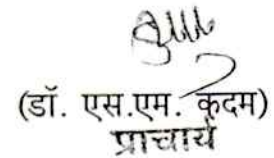 (डॉ. एस.एम. कदम)
प्राचार्य